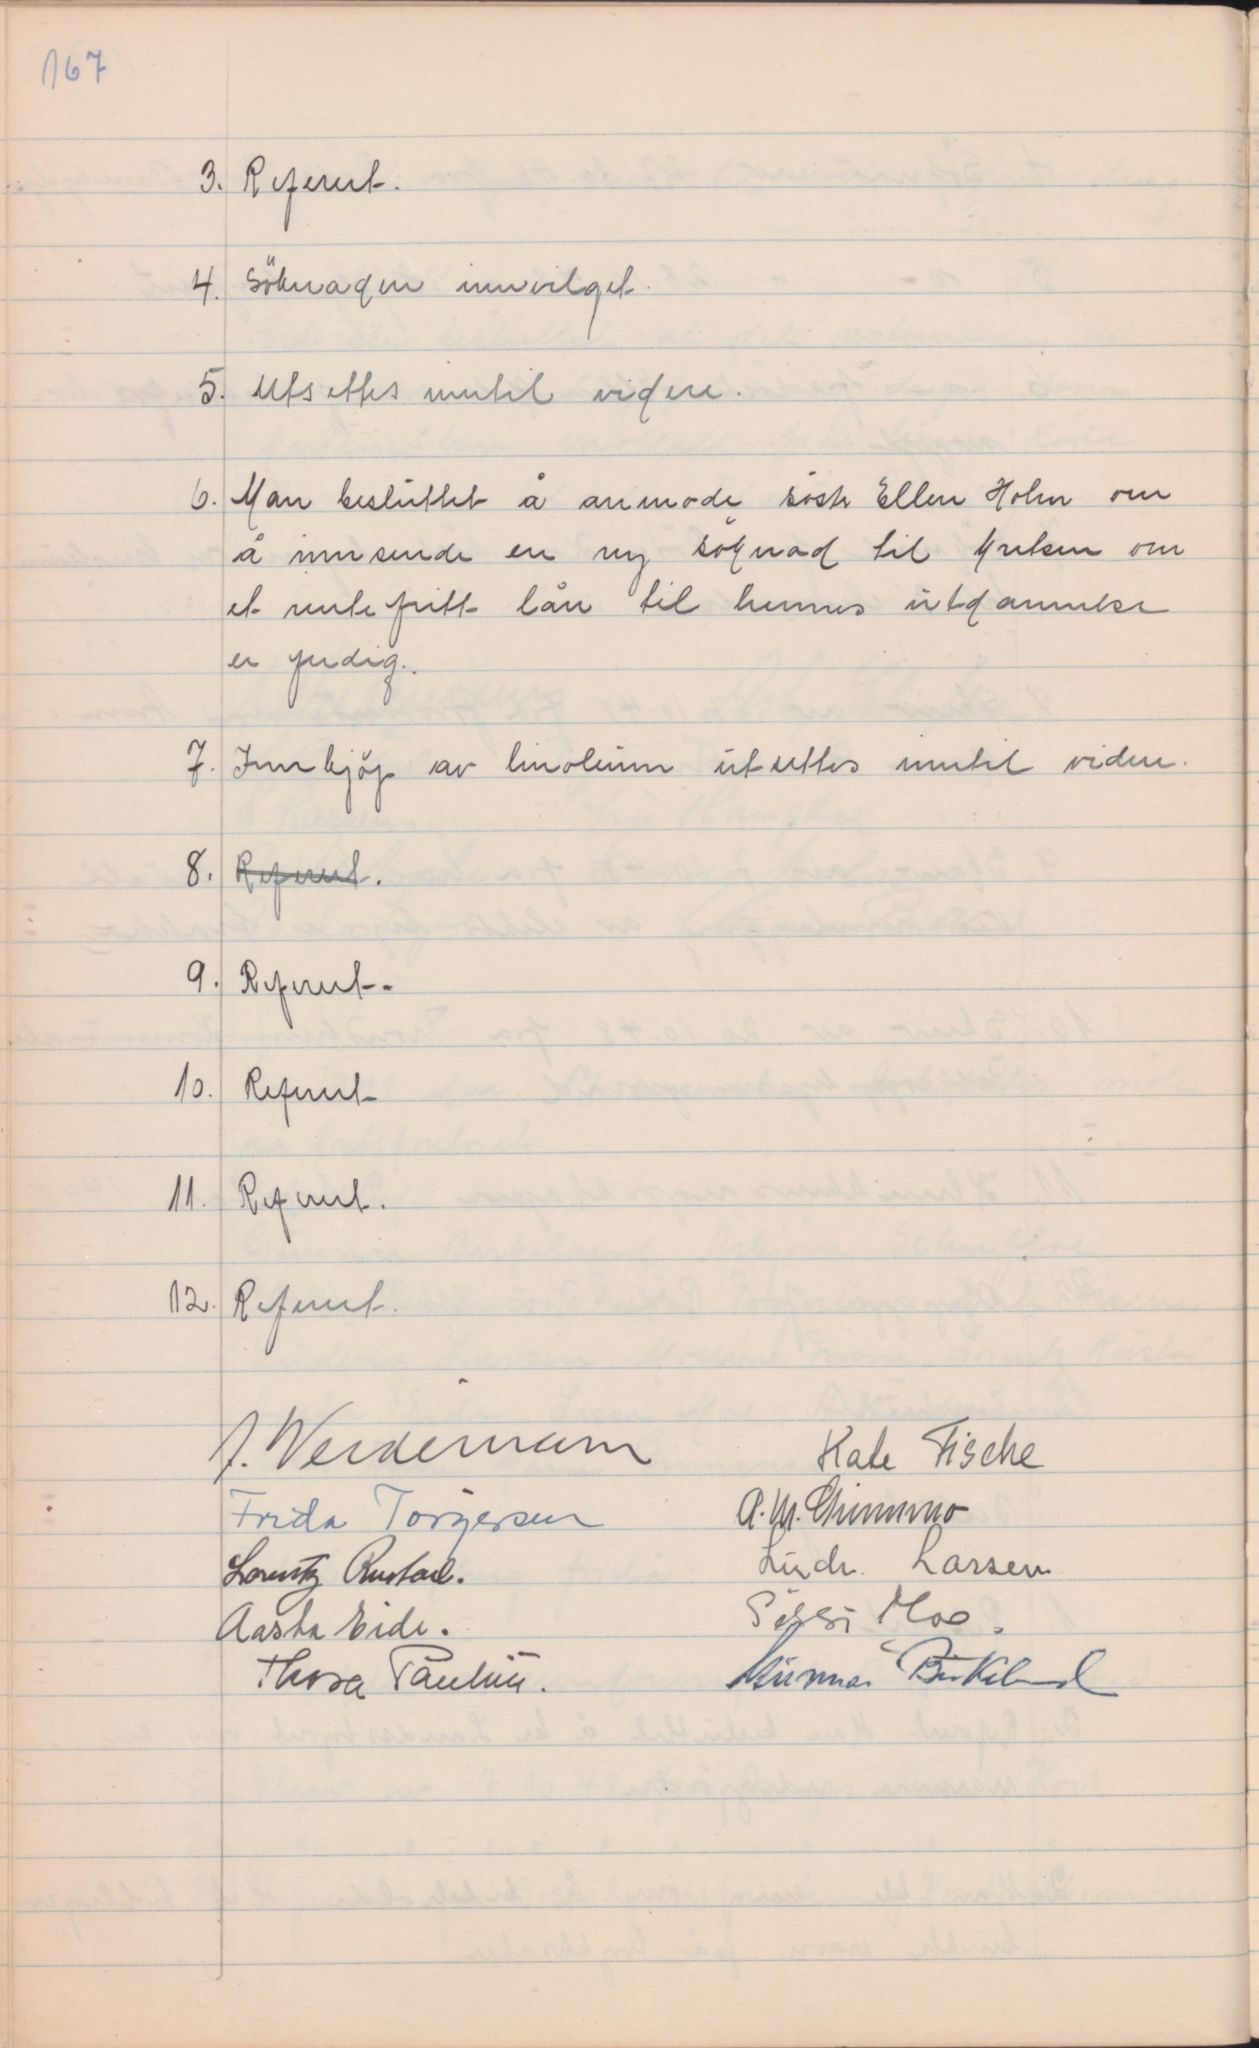 167
3. Referert.
4. Söknaden innvilget.
5. Utsettes inntil videre.
6. Man besluttet å anmode söstr Ellen Holm om
å innsende en ny söknad til kretsen om
et rentefritt lån til hennes utdannelse
er ferdig.
7. Innkjöp av linoleum utsettes inntil videre.
8. Referert.
9. Referert.
10. Referert
11. Referert.
12. Referert.
J. Werdemann Kate Fische
Frida Torgersen A. M. Chimmno
Lorentz Rustad. Ludv. Larsen
Aasta Eide. Sissi Moe.
Thora Paulsen. Gunnar Birkeland